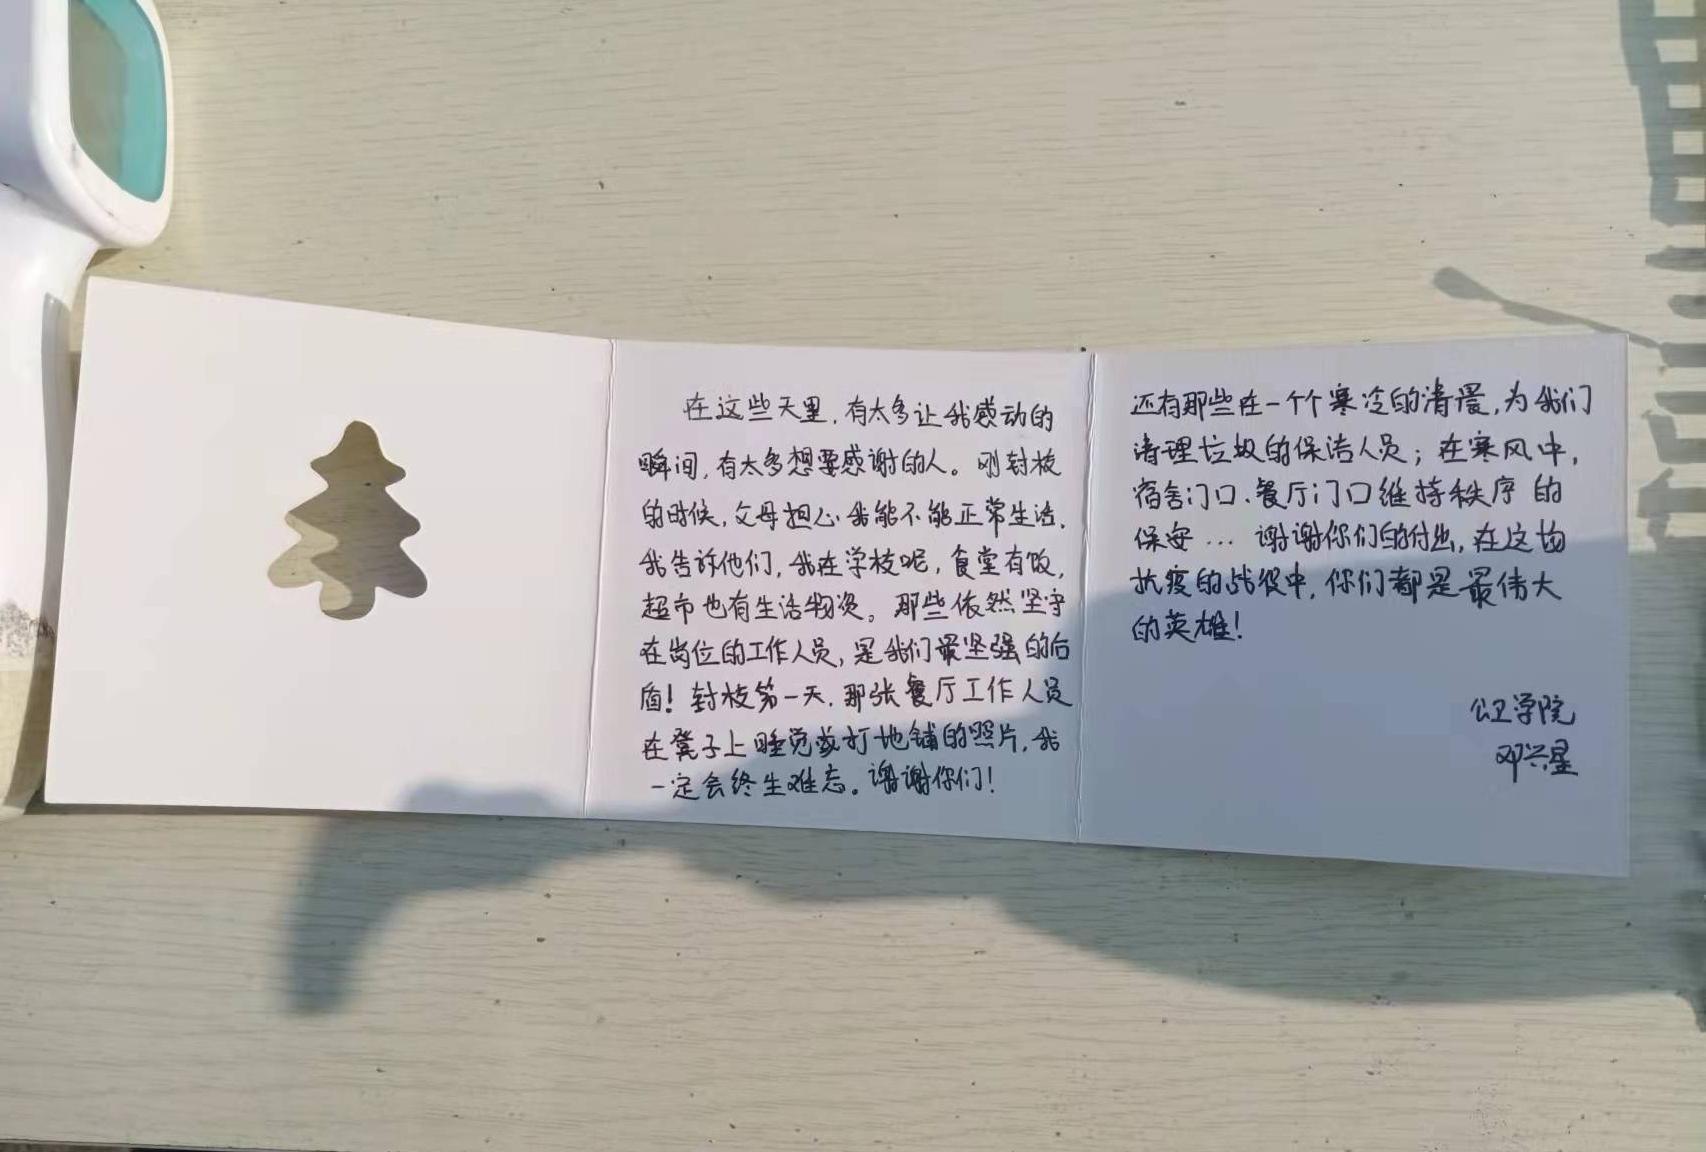 在这些天里，有太多让我感动的
瞬间，有太多想要感谢的人。刚封校
的时候，父母担心我能不能正常生活，
我告诉他们，我在学校呢，食堂有饭，
超市也有生活物资。那些依然坚守
在岗位的工作人员，是我们最坚强的后
盾！封校第一天，那张餐厅工作人员
在凳子上睡觉或打地铺的照片，我
一定会终生难忘。谢谢你们！
还有那些在一个个寒冷的清晨，为我们
清理垃圾的保洁人员；在寒风中，
宿舍门口、餐厅门口维持秩序的
保安… 谢谢你们的付出，在这场
抗疫的战役中，你们都是最伟大
的英雄！
公卫学院
邓兴星